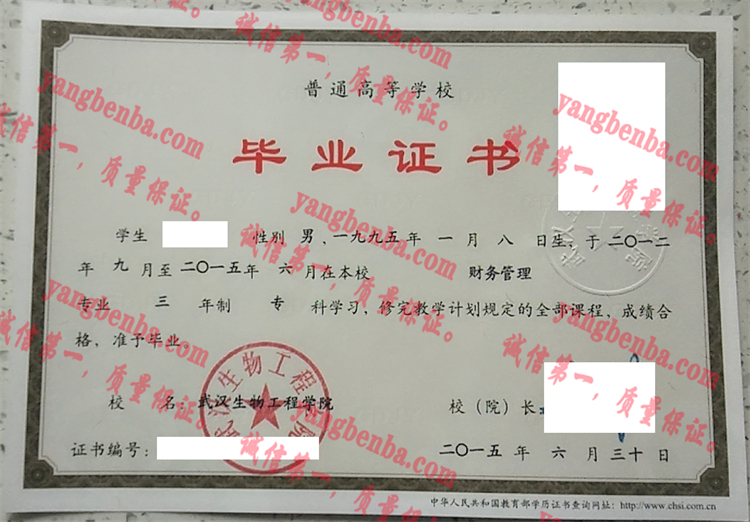 普通高等学校
毕业证书
学生 性别 男，一九九五年 一 月 八 日生，于二〇一二
年 九 月至二〇一五年 六 月在本校 财务管理
专业 三 年制 专 科学习，修完教学计划规定的全部课程，成绩合
格，准予毕业。
校 名：武汉生物工程学院 校（院）长：
证书编号： 二〇一五 年 六 月 三十 日
武汉生物工程学院
中华人民共和国教育部学历证书查询网址：http://www.chsi.com.cn
yangbenba.com
诚信第一，质量保证。
yangbenba.com
诚信第一，质量保证。
yangbenba.com
诚信第一，质量保证。
yangbenba.com
诚信第一，质量保证。
yangbenba.com
诚信第一，质量保证。
yangbenba.com
诚信第一，质量保证。